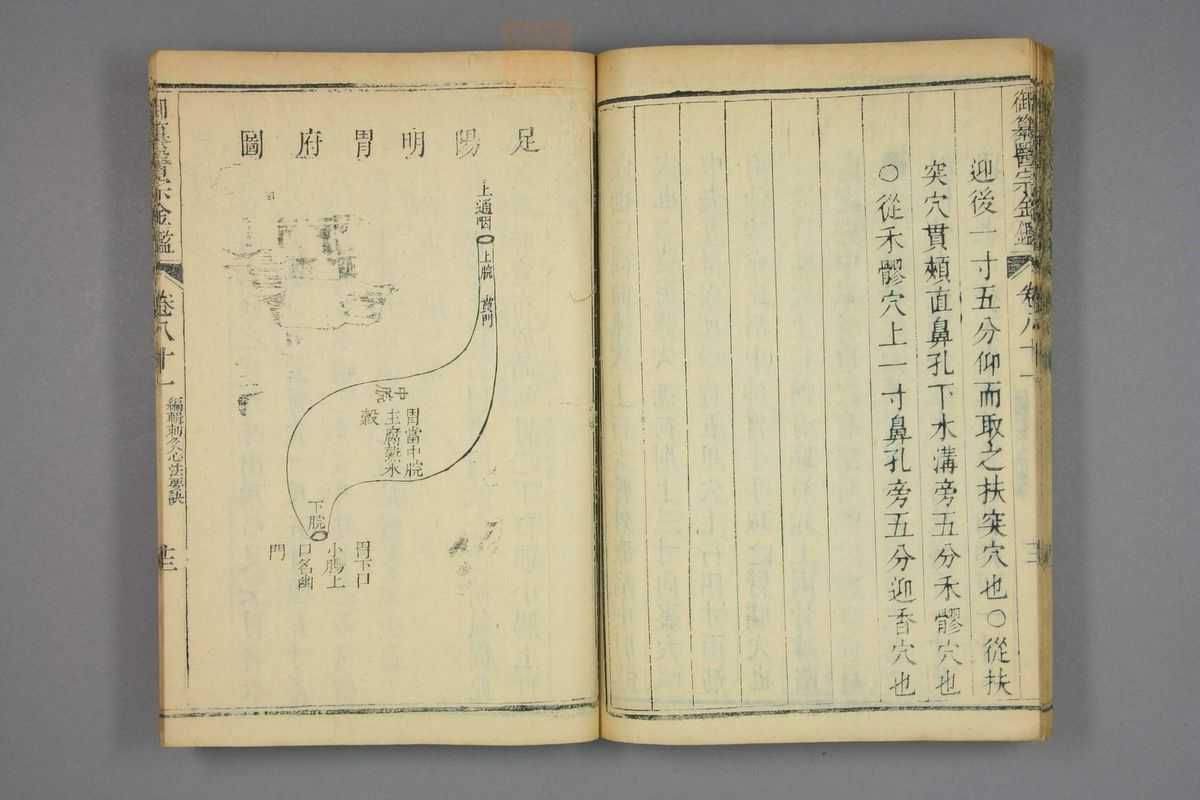 御纂醫宗金鑑 卷八十一
迎後一寸五分仰而取之扶突穴也○從扶
突穴貫頰直鼻孔下水溝旁五分禾髎穴也
○從禾髎穴上一寸鼻孔旁五分迎香穴也
足陽明胃府圖
上通咽
上脘
賁門
中脘
胃當中脘
主腐熟水
穀
下脘
胃下口
小腸上
口名幽
門
御纂醫宗金鑑 卷八十一 編輯刺灸心法要訣